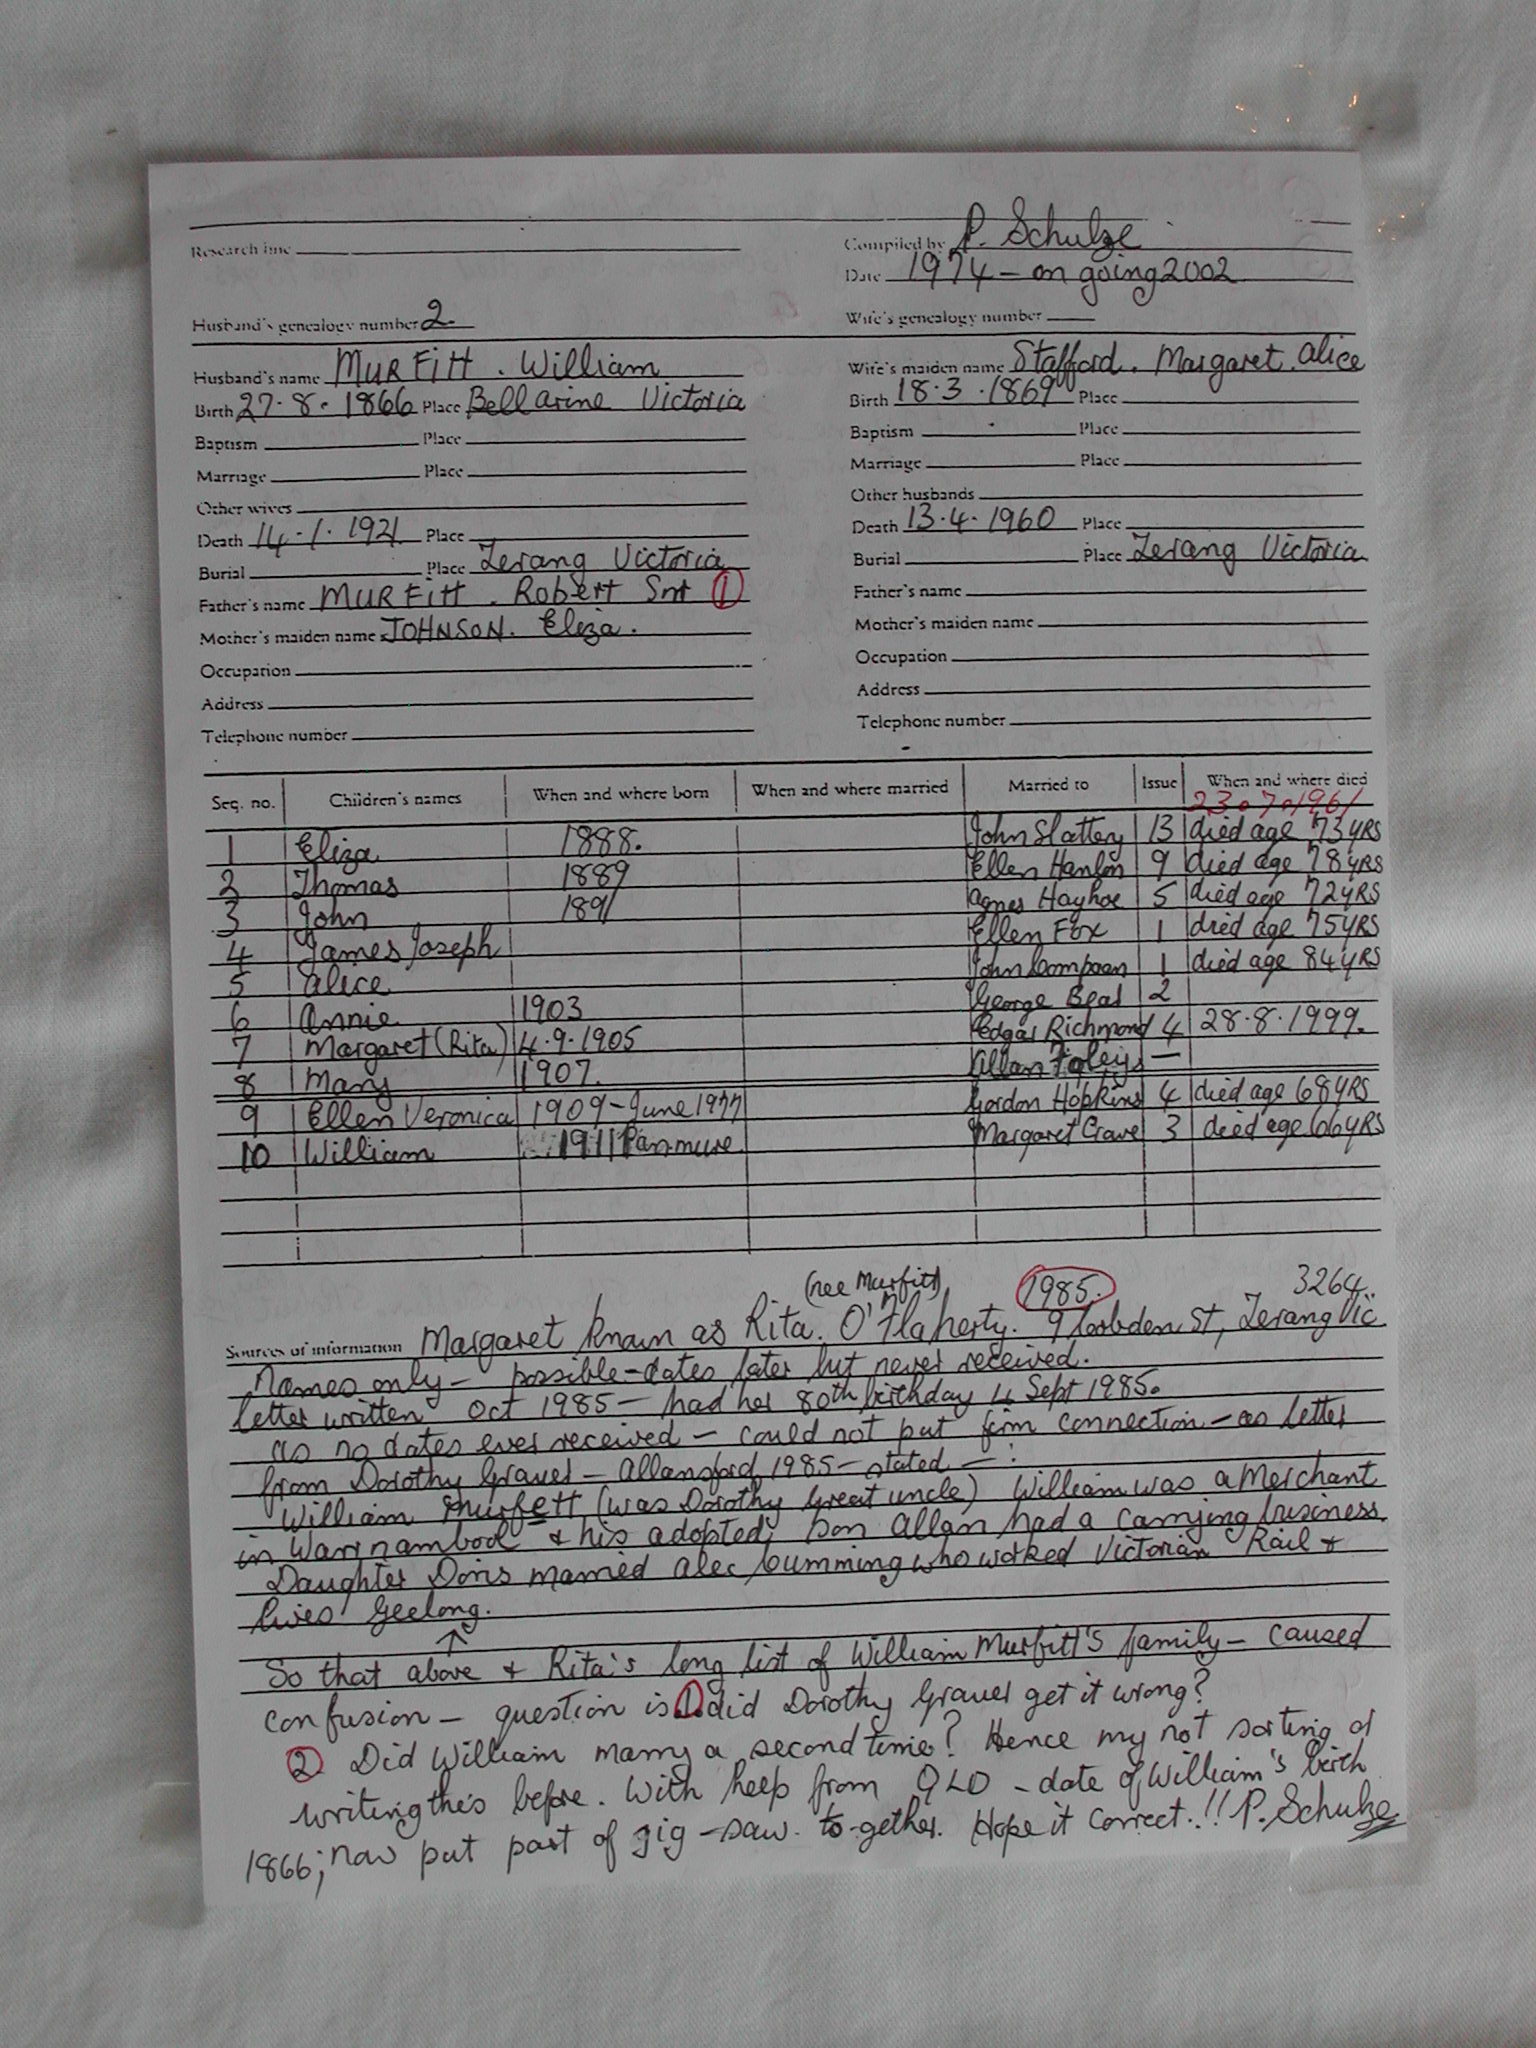 Research line
Compiled by P. Schulze
Date 1974 - on going 2002
Husband's genealogy number 2.
Wife's genealogy number
Husband's name MURFITT. William
Wife's maiden name Stafford. Margaret. Alice
Birth 27·8·1866 Place Bellarine Victoria
Birth 18·3·1869 Place
Baptism Place
Baptism Place
Marriage Place
Marriage Place
Other wives
Other husbands
Death 14·1·1921 Place
Death 13·4·1960 Place
Burial Place Terang Victoria
Burial Place Terang Victoria
Father's name MURFITT. Robert Snr ①
Father's name
Mother's maiden name JOHNSON. Eliza.
Mother's maiden name
Occupation
Occupation
Address
Address
Telephone number
Telephone number
Seq. no. Children's names When and where born When and where married Married to Issue When and where died
23·7·1961
1 Eliza 1888. John Slattery 13 died age 73 YRS
2 Thomas 1889 Ellen Hanlon 9 died age 78 YRS
3 John 1891 Agnes Hayhoe 5 died age 72 YRS
4 James Joseph Ellen Fox 1 died age 75 YRS
5 Alice John 1 died age 84 YRS
6 Annie 1903 George Beal 2
7 Margaret (Rita) 4·9·1905 Edgar Richmond 4 28·8·1999.
8 Mary 1907. Allan —
9 Ellen Veronica 1909 - June 1977 Gordon Hopkins 4 died age 68 YRS
10 William 1911 Panmure Margaret Crave 3 died age 66 YRS
(nee Murfitt) 1985. 3264.
Sources of information Margaret known as Rita. O'Flaherty. 9 Cobden St, Terang Vic
Names only - possible - dates later but never received.
letter written Oct 1985 - had her 80th birthday 4 Sept 1985.
as no dates ever received - could not put firm connection - as letter
from Dorothy Graves - Allansford 1985 - stated - :
William Murfett (was Dorothy Great uncle) William was a Merchant
in Warrnambool & his adopted, son Allan had a carrying business.
Daughter Doris married Alec Cumming who worked Victorian Rail &
lives Geelong.
So that above & Rita's long list of William Murfitt's family - caused
confusion - question is 1. did Dorothy Graves get it wrong?
② Did William marry a second time? Hence my not sorting or
writing this before. With help from QLD - date of William's birth
1866; now put part of jig-saw. to-gether. Hope it correct.!! P. Schulze